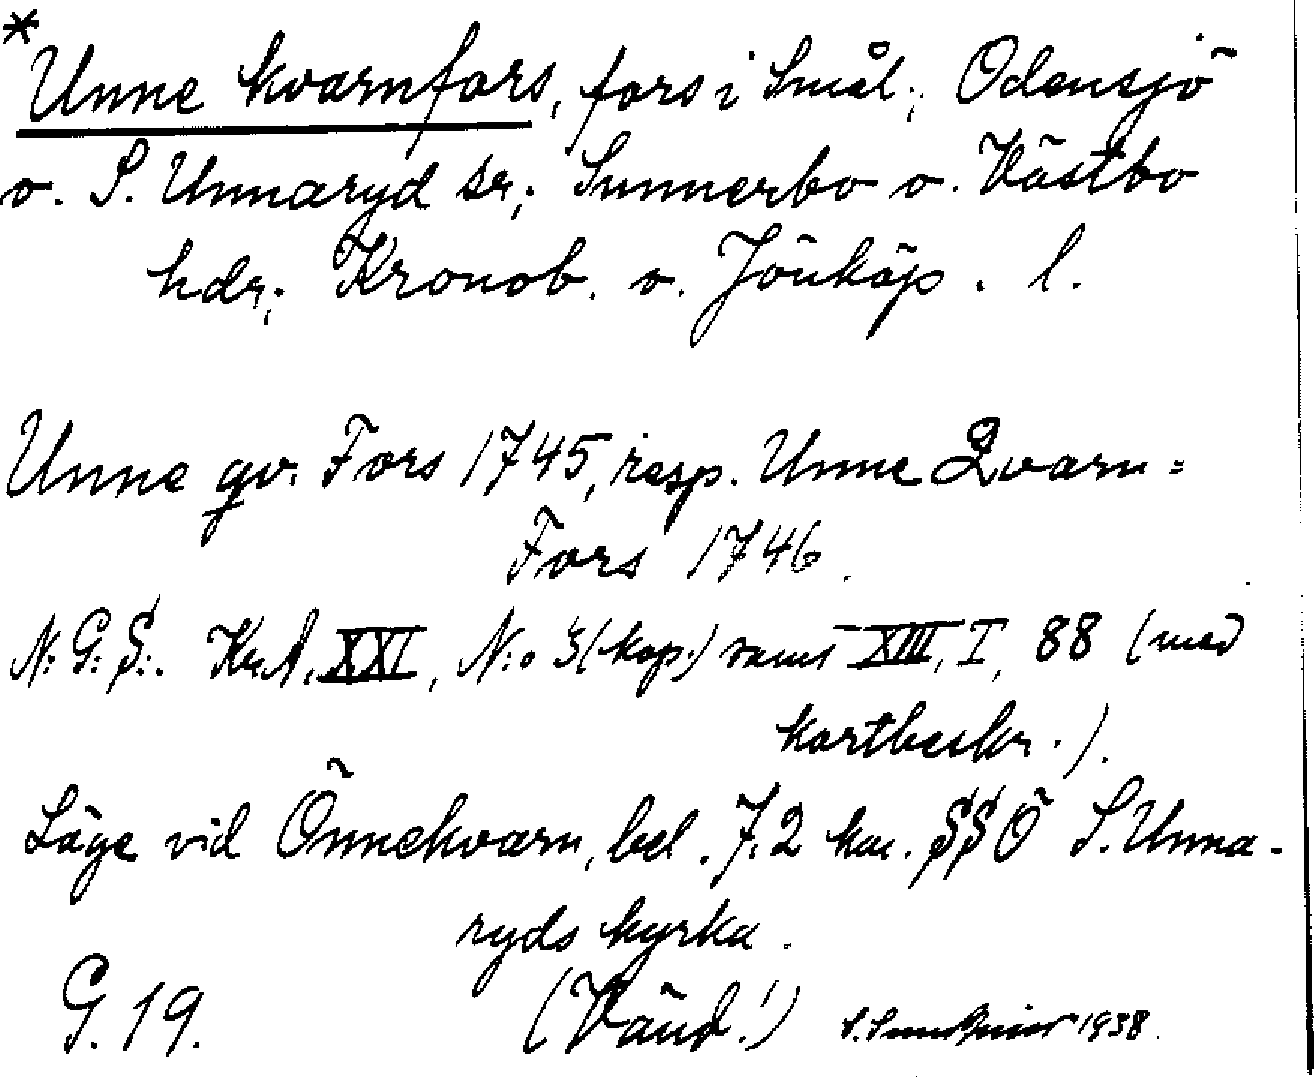 *
Unne kvarnfors, fors i Smål.; Odensjö
o. S. Unnaryd sr; Sunnerbo o. Västbo
hdr; Kronob. o. Jönköp. l.
Unne qv. Fors 1745, resp. Unne Qvarn=
Fors 1746.
N: G: S:. Kr.A. XXI, N:o 3 (kop.) samt XIII, I, 88 (med
kartbeskr.).
Läge vid Önnekvarn, bel. 7.2 km. SSÖ S. Unna-
ryds kyrka.
G. 19. (Vänd!) 1938.